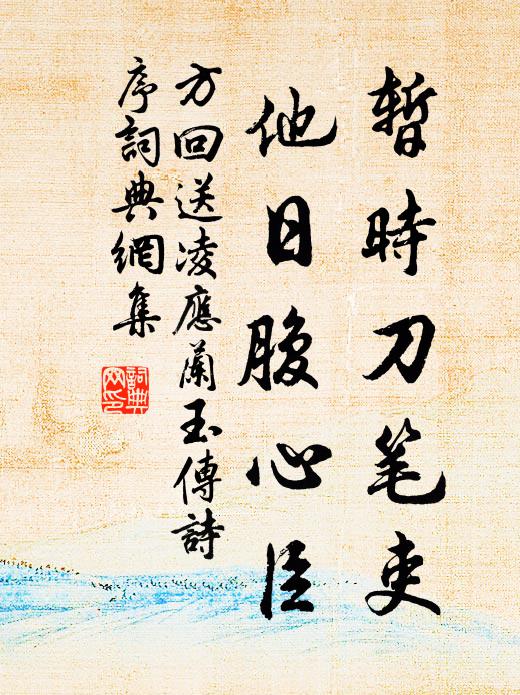 暫時刀笔吏
他日腹心臣
方回送凌應蘭玉傳詩
序詞典網集
詞典
网印